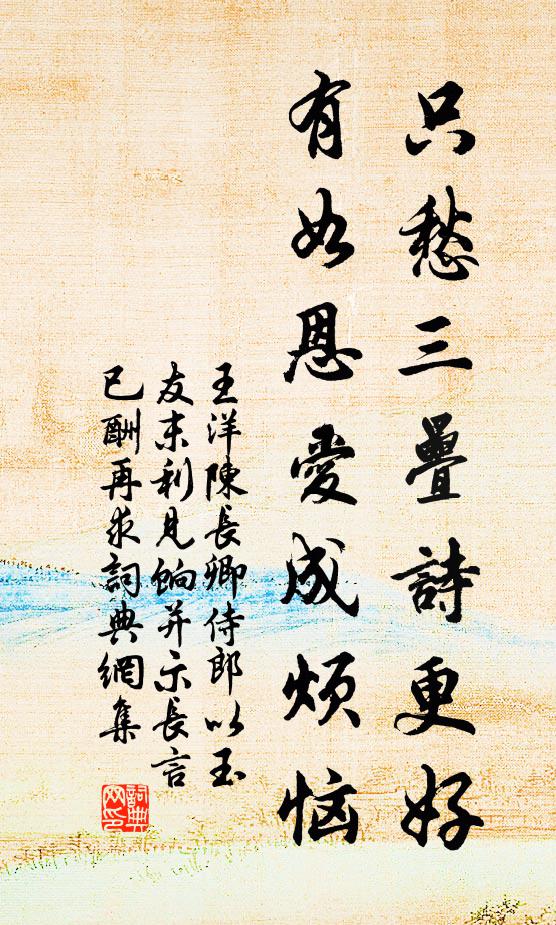 只愁三疊詩更好
有如恩愛成煩恼
王洋陳長卿侍郎以玉
友末利見餉并示長言
已酬再求詞典網集
詞典网印